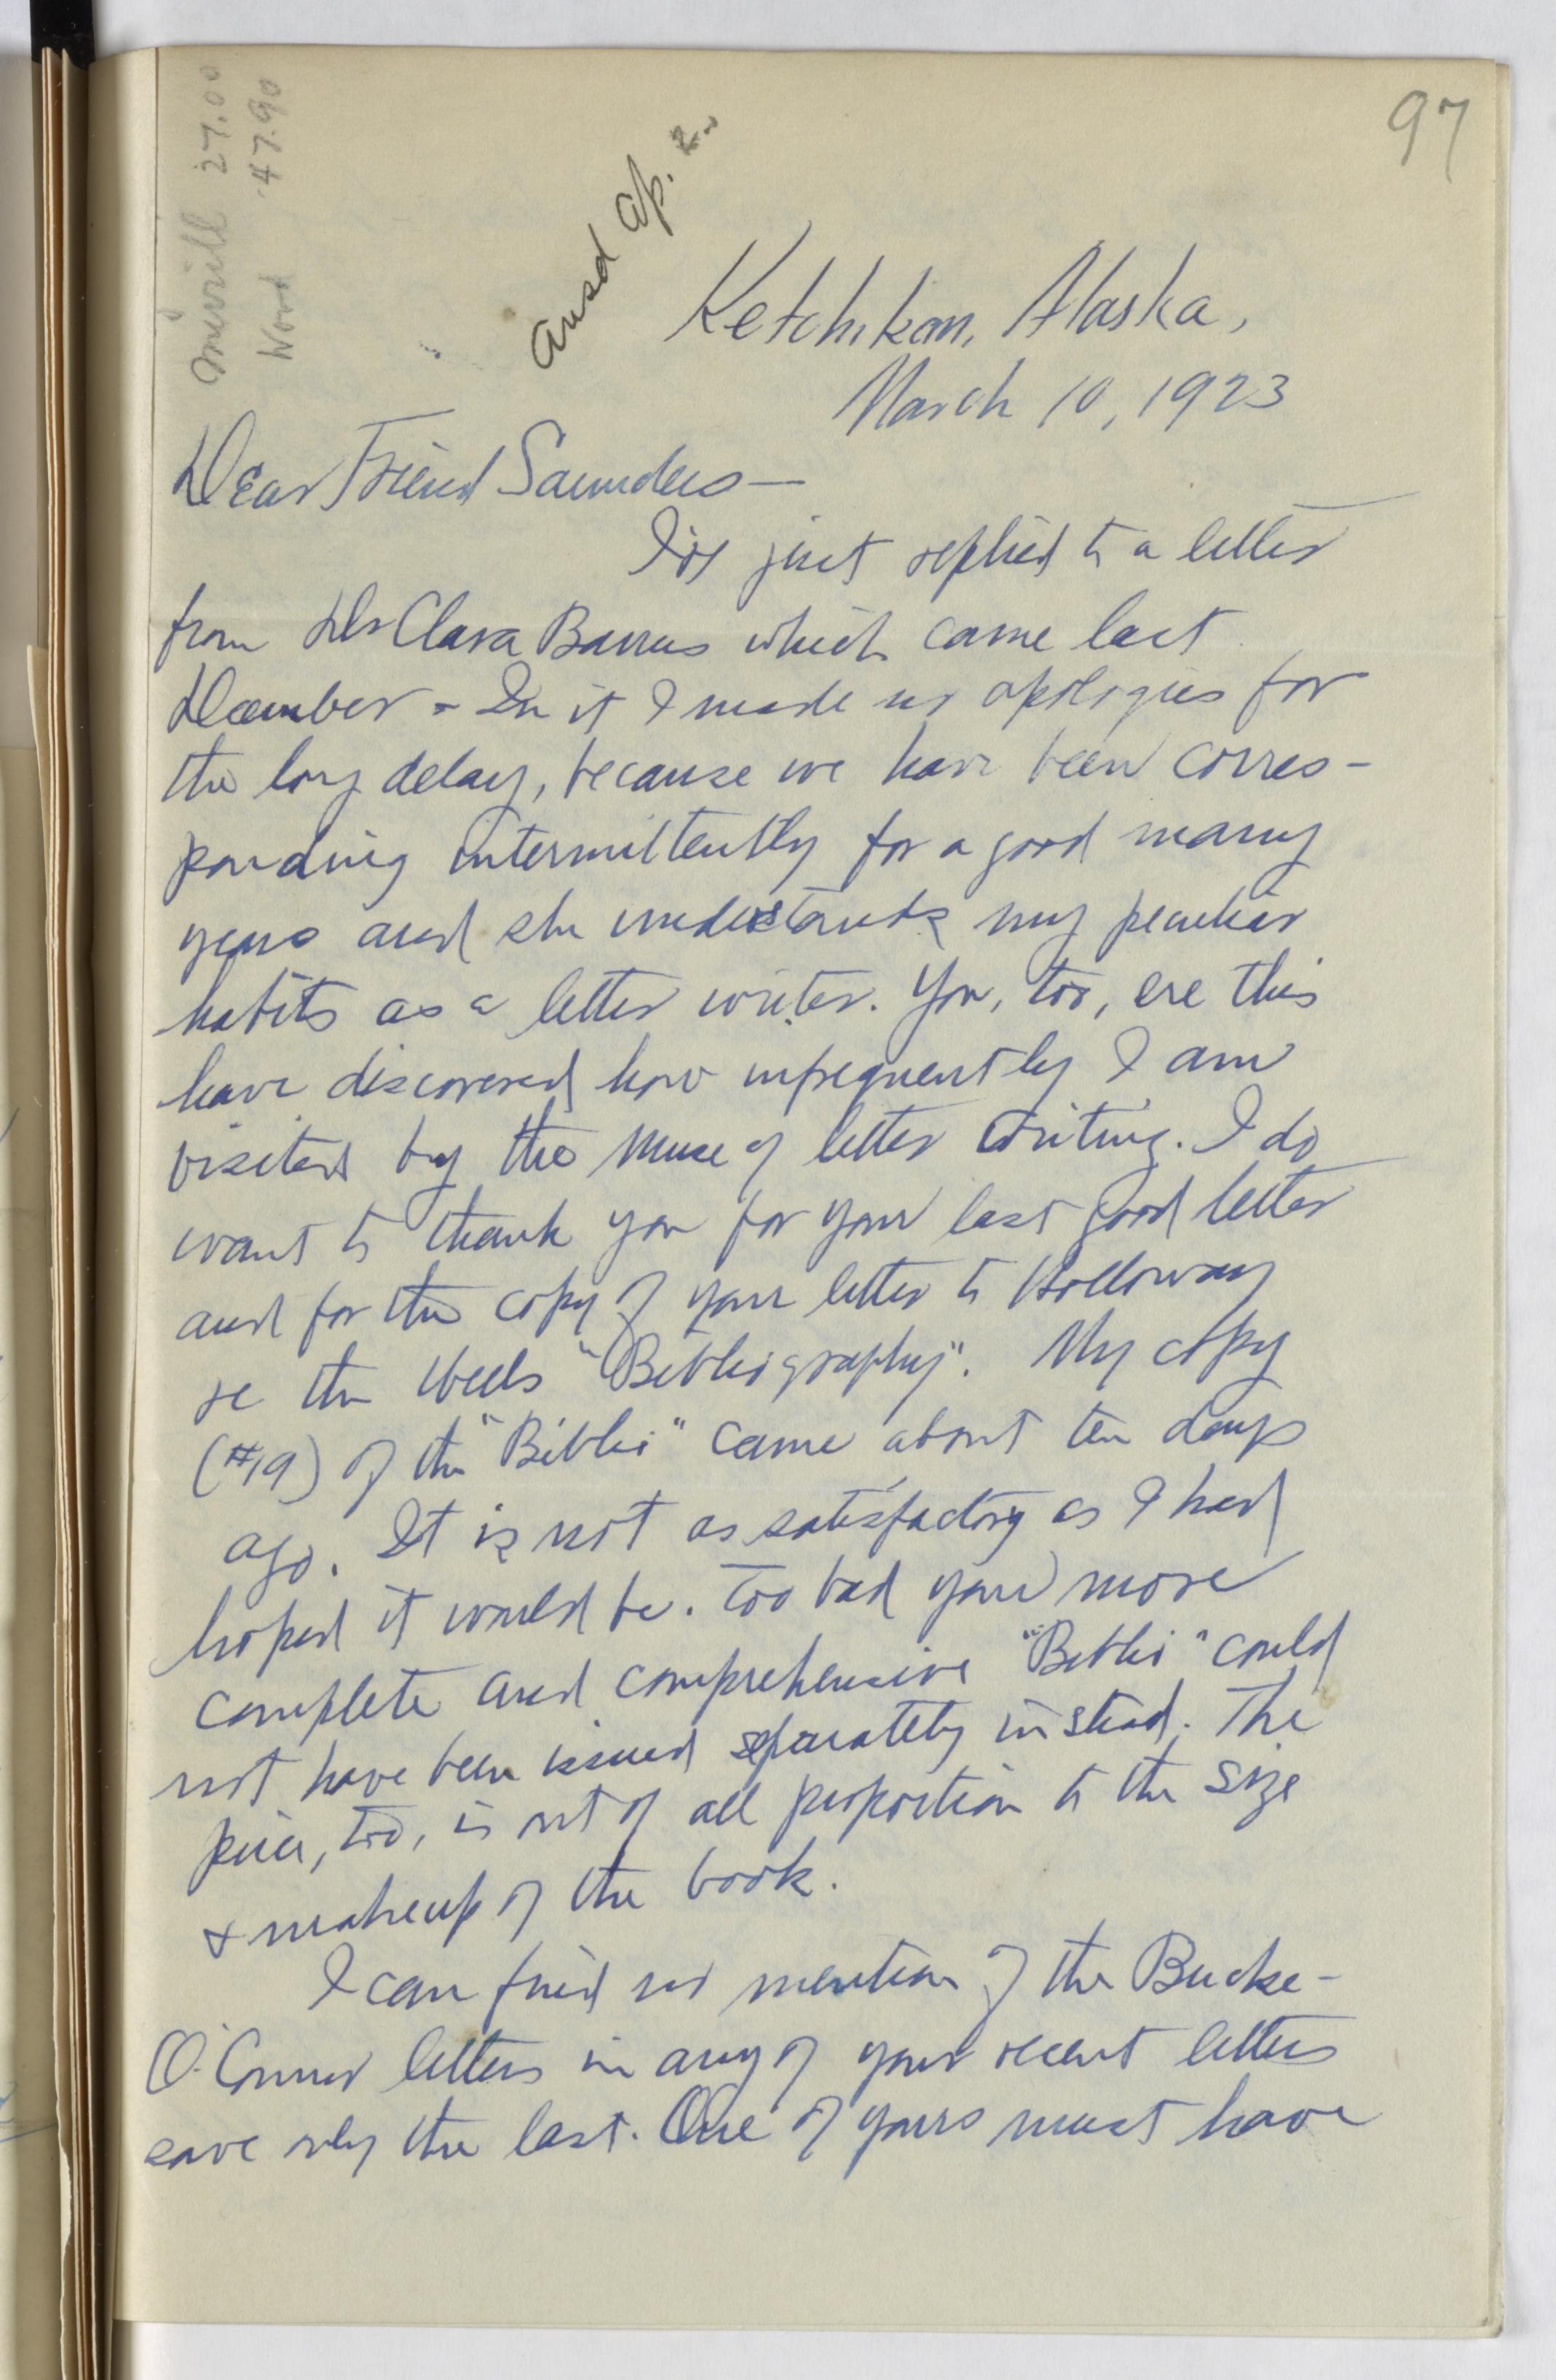 97
27.00
Word 47.90
Ansd Ap. 2
Ketchikan, Alaska,
March 10, 1923
Dear Friend Saunders —
I've just replied to a letter
from Dr Clara Barrus which came last
December - In it I made no apologies for
the long delay, because we have been corres-
ponding intermittently for a good many
years and she understands my peculiar
habits as a letter writer. You, too, ere this
have discovered how infrequently I am
visited by the muse of letter writing. I do
want to thank you for your last good letter
and for the copy of your letter to Holloway
re the Wells "Bibliography". My copy
(#19) of the "Biblio" came about ten days
ago. It is not as satisfactory as I had
hoped it would be. Too bad your more
complete and comprehensive "Biblio" could
not have been issued separately instead. The
price, too, is out of all proportion to the size
& makeup of the book.
I can find no mention of the Bucke-
O'Connor letters in any of your recent letters
save only the last. One of yours must have